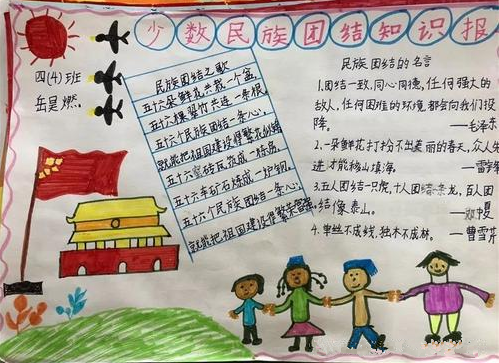 少数民族团结知识报
四(4)班
岳昊燃.
民族团结之歌
五十六朵鲜花共栽一个盆,
五十六棵翠竹共连一条根
五十六个民族团结一条心,
就能把祖国建设得繁花似锦
五十六窑砖瓦烧成一炼局.
五十六车矿石炼成一炉钢.
五十六个民族团结一条心,
就能把祖国建设得繁荣富强
民族团结的名言
1.团结一致,同心同德,任何强大的
敌人,任何困难的环境,都会向我们投
降.
—毛泽东
2.一朵鲜花打扮不出美丽的春天,众人先
进才能移山填海.
—雷锋
3.五人团结一只虎,十人团结一条龙,百人团
结像泰山.
—邓中夏
4.单丝不成线,独木不成林.
—曹雪芹